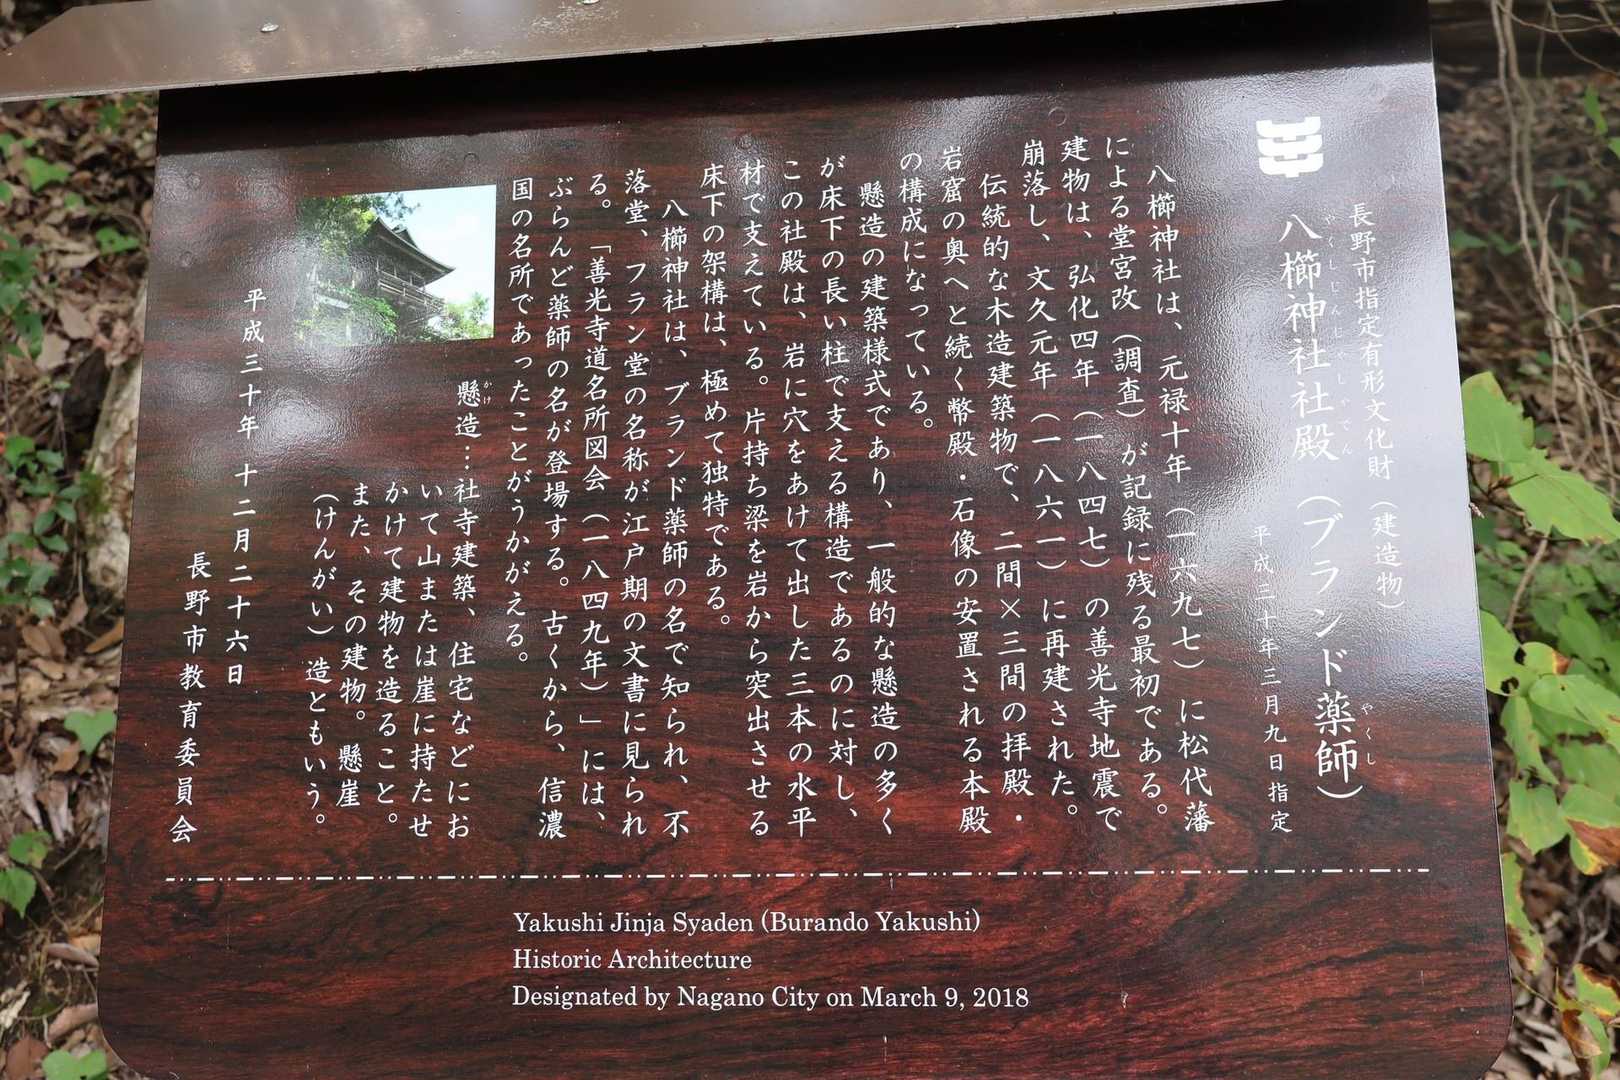 長野市指定有形文化財（建造物）
八櫛神社社殿（ブランド薬師）
やくしじんじゃしゃでん
やくし
平成三十年三月九日指定
八櫛神社は、元禄十年（一六九七）に松代藩
による堂宮改（調査）が記録に残る最初である。
建物は、弘化四年（一八四七）の善光寺地震で
崩落し、文久元年（一八六一）に再建された。
伝統的な木造建築物で、二間×三間の拝殿・
岩窟の奥へと続く幣殿・石像の安置される本殿
の構成になっている。
懸造の建築様式であり、一般的な懸造の多く
が床下の長い柱で支える構造であるのに対し、
この社殿は、岩に穴をあけて出した三本の水平
材で支えている。片持ち梁を岩から突出させる
床下の架構は、極めて独特である。
八櫛神社は、ブランド薬師の名で知られ、不
落堂、フラン堂の名称が江戸期の文書に見られ
る。「善光寺道名所図会（一八四九年）」には、
ぶらんど薬師の名が登場する。古くから、信濃
国の名所であったことがうかがえる。
懸造…社寺建築、住宅などにお
かけ
いて山または崖に持たせ
かけて建物を造ること。
また、その建物。懸崖
（けんがい）造ともいう。
平成三十年十二月二十六日
長野市教育委員会
Yakushi Jinja Syaden (Burando Yakushi)
Historic Architecture
Designated by Nagano City on March 9, 2018